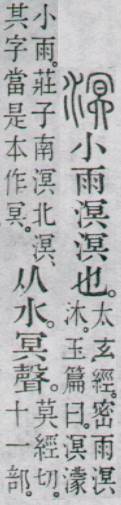 溟小雨溟溟也。
太玄經。密雨溟
沐。玉篇曰。溟濛
小雨。莊子南溟北溟、
其字當是本作冥。
从水。冥聲。
莫經切。
十一部。